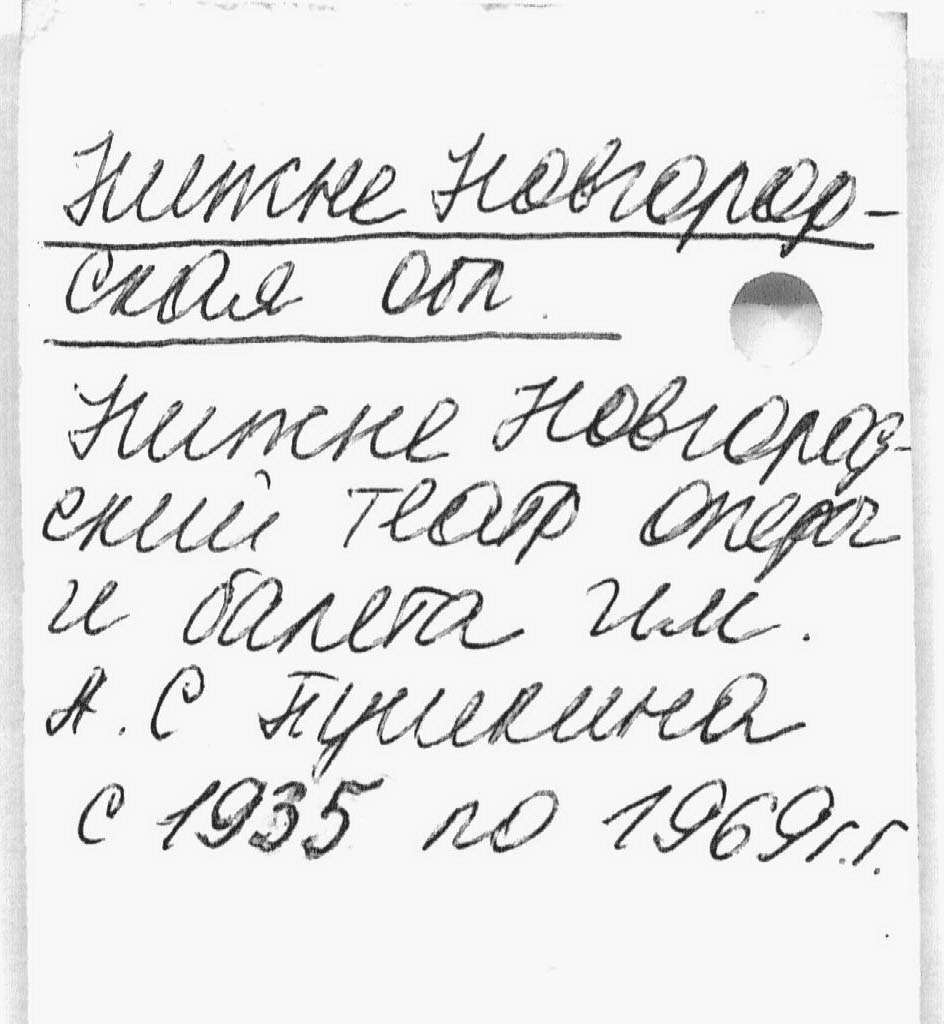 Нижне Новгород-
ская обл.
Нижне Новгород-
ский театр оперы
и балета им.
А.С Пушкина
с 1935 по 1969г.г.